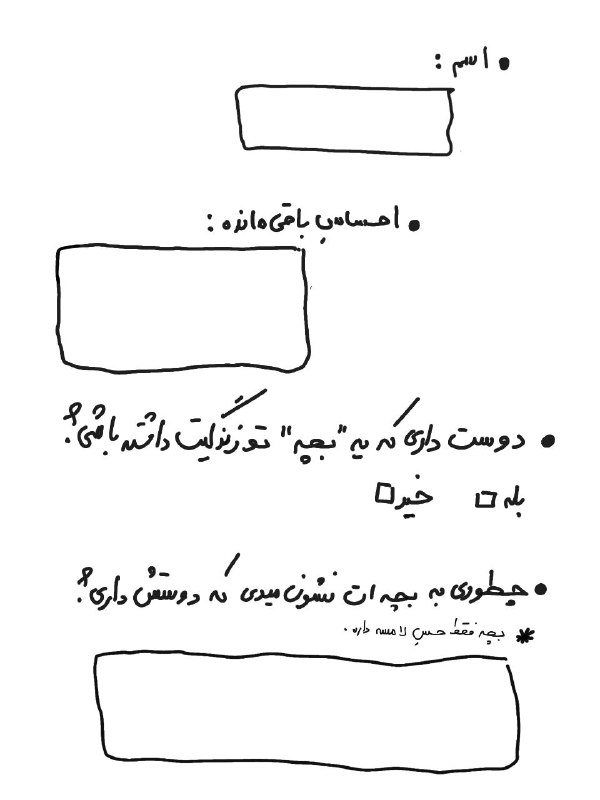 • اسم :
• احساسِ باقی‌مانده :
• دوست داری که یه "بچه" تو زندگیت داشته باشی؟
بله □ خیر □
• چطوری به بچه ات نشون میدی که دوستش داری؟
* بچه فقط حسِ لامسه داره.